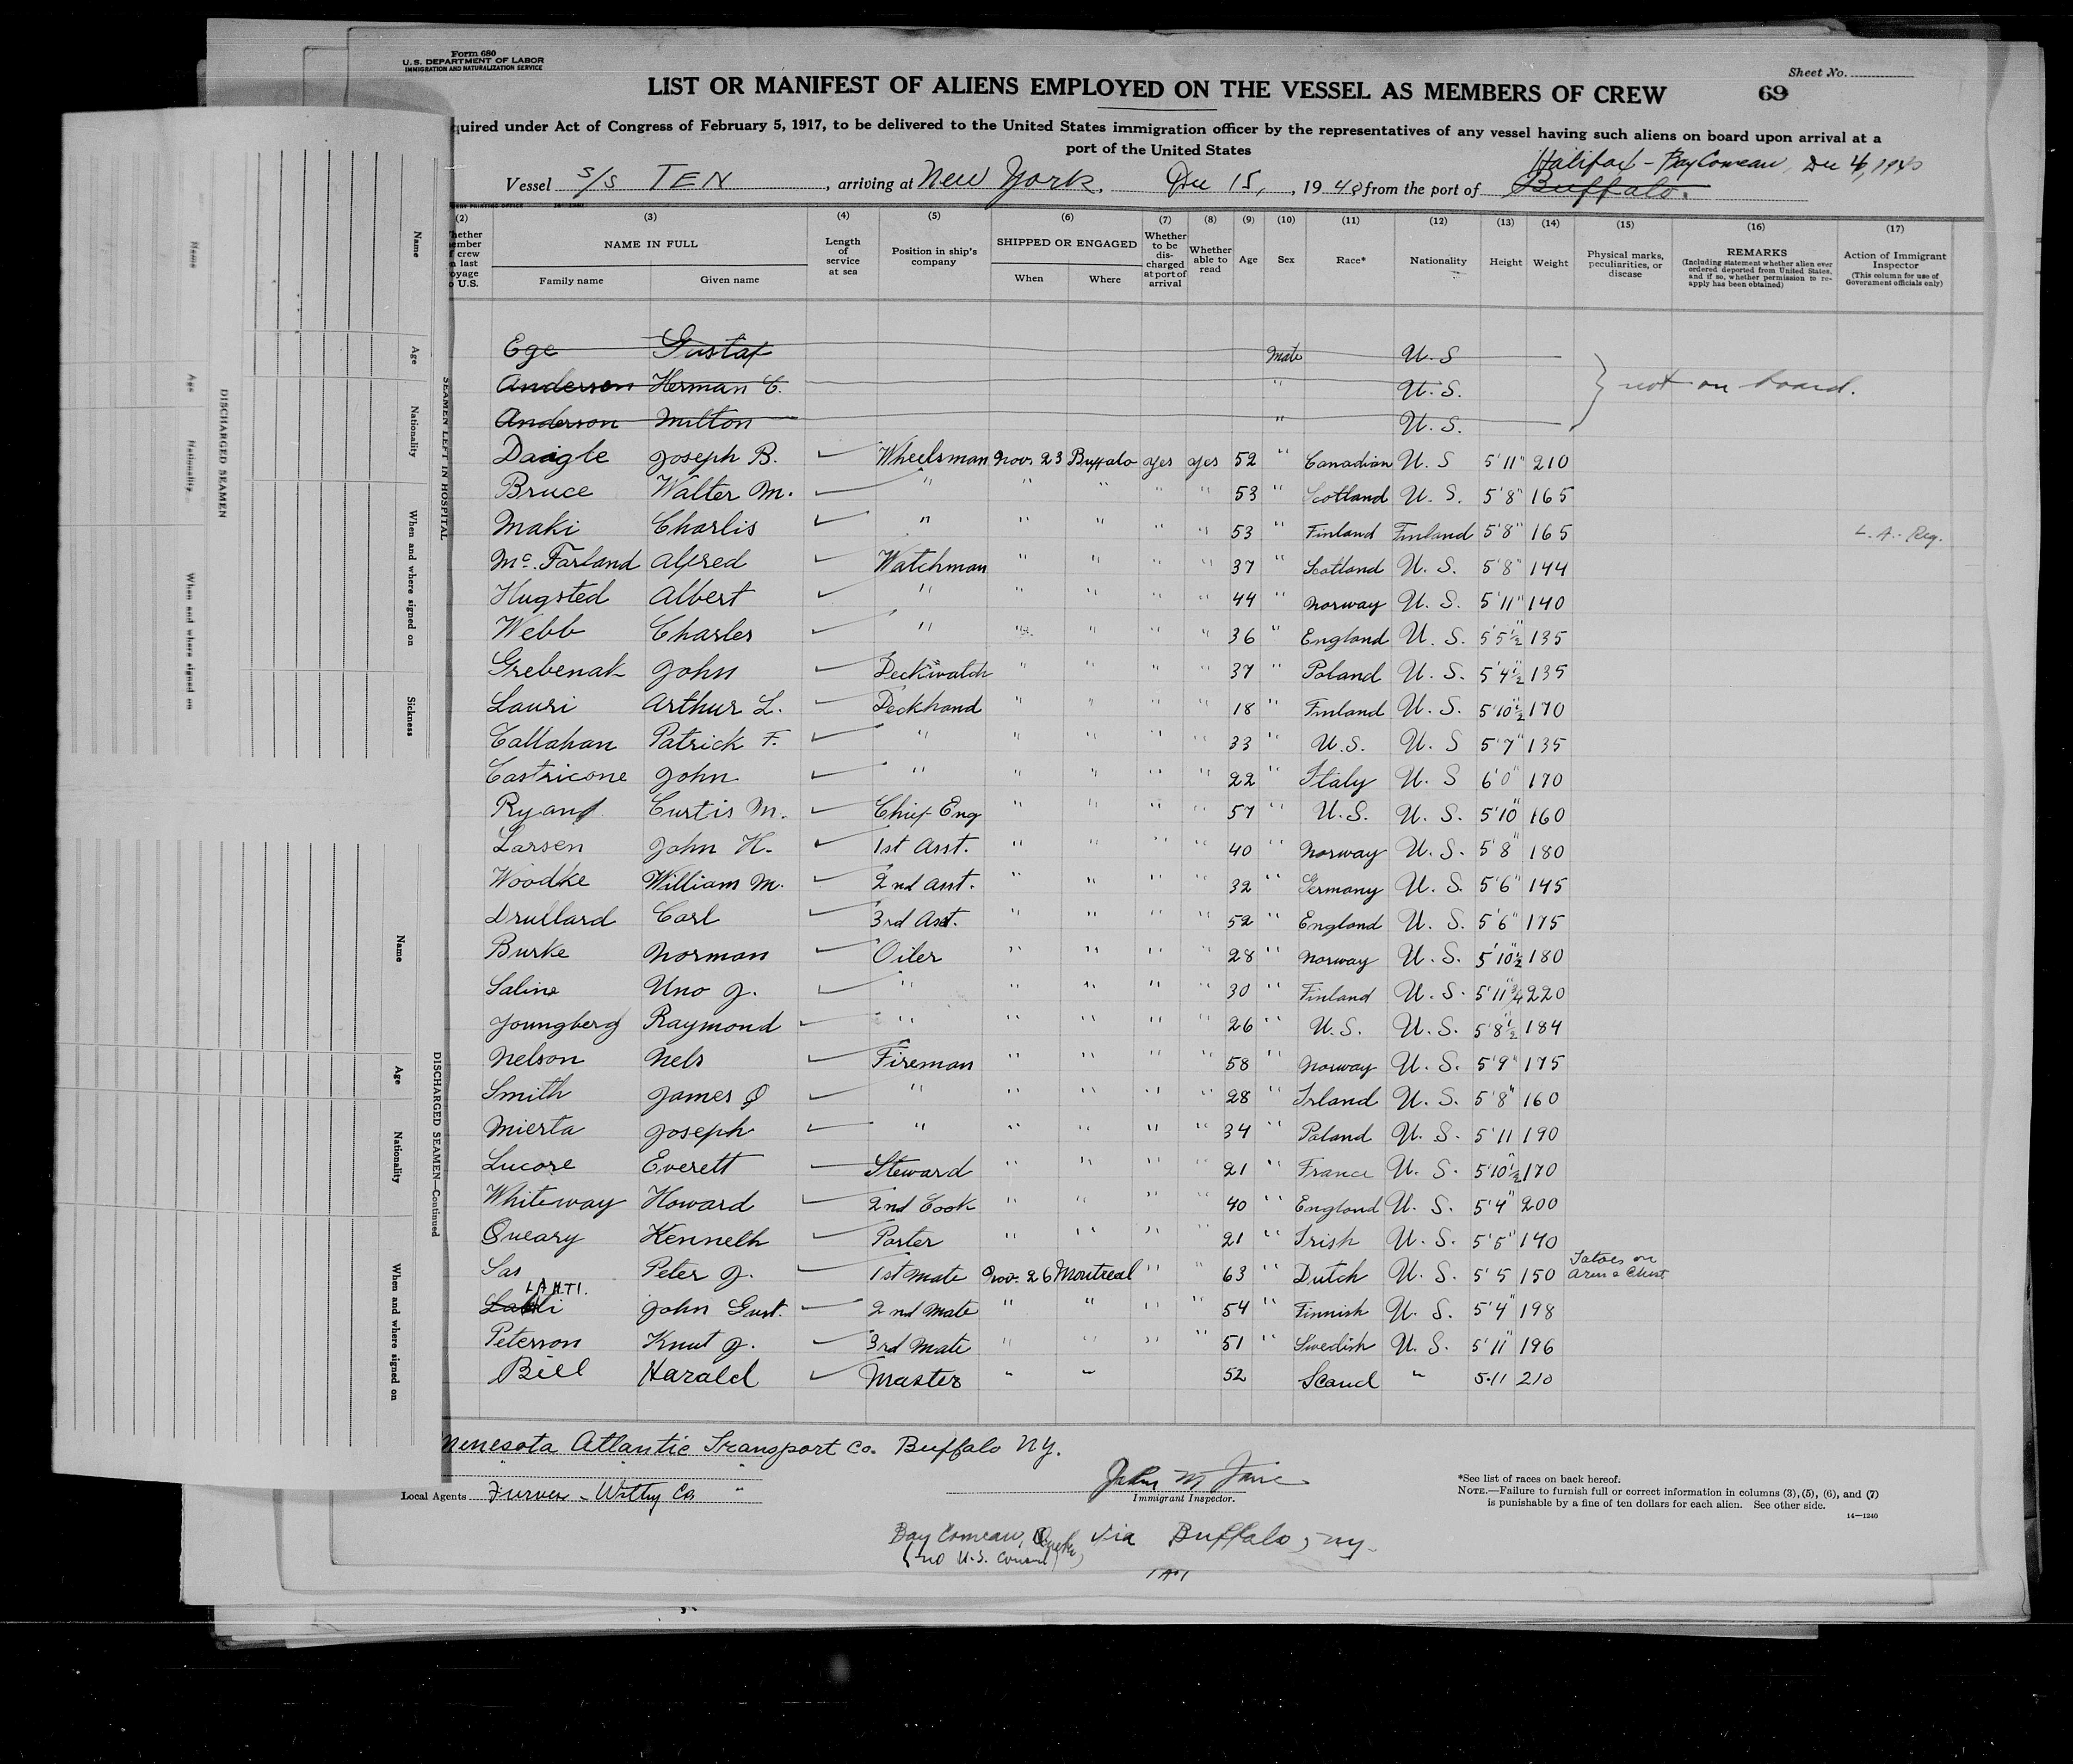 Form 680
U.S. DEPARTMENT OF LABOR
IMMIGRATION AND NATURALIZATION SERVICE
Sheet No.
LIST OR MANIFEST OF ALIENS EMPLOYED ON THE VESSEL AS MEMBERS OF CREW
69
quired under Act of Congress of February 5, 1917, to be delivered to the United States immigration officer by the representatives of any vessel having such aliens on board upon arrival at a
port of the United States
Halifax - Bay Comeau, Dec 4, 1940
Vessel S/S TEN, arriving at New York, Dec 15, 1940 from the port of Buffalo.
(2) (3) (4) (5) (6) (7) (8) (9) (10) (11) (12) (13) (14) (15) (16) (17)
NAME IN FULL
Family name Given name
Length of service at sea
Position in ship's company
SHIPPED OR ENGAGED
When Where
Whether to be discharged at port of arrival
Whether able to read
Age Sex Race* Nationality Height Weight
Physical marks, peculiarities, or disease
REMARKS
(Including statement whether alien ever ordered deported from United States, and if so, whether permission to reapply has been obtained)
Action of Immigrant Inspector
(This column for use of Government officials only)
Ege Gustaf Male U.S
Anderson Herman C. " U.S. not on board.
Anderson Milton " U.S.
Daigle Joseph B. Wheelsman Nov. 23 Buffalo yes yes 52 " Canadian U.S 5'11" 210
Bruce Walter M. " " " " " 53 " Scotland U.S. 5'8" 165
Maki Charlis " " " " " 53 " Finland Finland 5'8" 165 L.A. Reg.
Mc. Farland Alfred Watchman " " " " 37 " Scotland U.S. 5'8" 144
Hugsted Albert " " " " " 44 " Norway U.S. 5'11" 140
Webb Charles " " " " " 36 " England U.S. 5'5½" 135
Grebenak John Deckwatch " " " " 37 " Poland U.S. 5'4½" 135
Lauri Arthur L. Deckhand " " " " 18 " Finland U.S. 5'10½" 170
Callahan Patrick F. " " " " " 33 " U.S. U.S 5'7" 135
Castricone John " " " " " 22 " Italy U.S 6'0" 170
Ryan Curtis M. Chief Eng " " " " 57 " U.S. U.S. 5'10" 160
Larsen John H. 1st Asst. " " " " 40 " Norway U.S. 5'8" 180
Woodke William M. 2nd Asst. " " " " 32 " Germany U.S. 5'6" 145
Drullard Carl 3rd Asst. " " " " 52 " England U.S. 5'6" 175
Burke Norman Oiler " " " " 28 " Norway U.S. 5'10½" 180
Saline Uno J. " " " " " 30 " Finland U.S. 5'11¾" 220
Youngberg Raymond " " " " " 26 " U.S. U.S. 5'8½" 184
Nelson Nels Fireman " " " " 58 " Norway U.S. 5'9" 175
Smith James " " " " " 28 " Irland U.S. 5'8" 160
Mierta Joseph " " " " " 34 " Poland U.S. 5'11 190
Lucore Everett Steward " " " " 21 " France U.S. 5'10½" 170
Whiteway Howard 2nd Cook " " " " 40 " England U.S. 5'4" 200
Queary Kenneth Porter " " " " 21 " Irish U.S. 5'5" 140
Sas Peter J. 1st Mate Nov. 26 Montreal " " 63 " Dutch U.S. 5'5 150 Tatoes on Arm & Chest
LAHTI.
John Gust. 2nd Mate " " " " 54 " Finnish U.S. 5'4" 198
Peterson Knut J. 3rd Mate " " " " 51 " Swedish U.S. 5'11" 196
Bill Harald Master " " 52 Scand " 5-11 210
Minnesota Atlantic Transport Co. Buffalo NY.
" " "
Local Agents Furness - Withy Co. "
Immigrant Inspector.
*See list of races on back hereof.
NOTE.—Failure to furnish full or correct information in columns (3), (5), (6), and (7)
is punishable by a fine of ten dollars for each alien. See other side.
14—1240
Bay Comeau, Quebec, via Buffalo, NY.
(no U.S. Consul)
SEAMEN LEFT IN HOSPITAL
Name Age Nationality When and where signed on Sickness
DISCHARGED SEAMEN
Name Age Nationality When and where signed on
DISCHARGED SEAMEN—Continued
Name Age Nationality When and where signed on